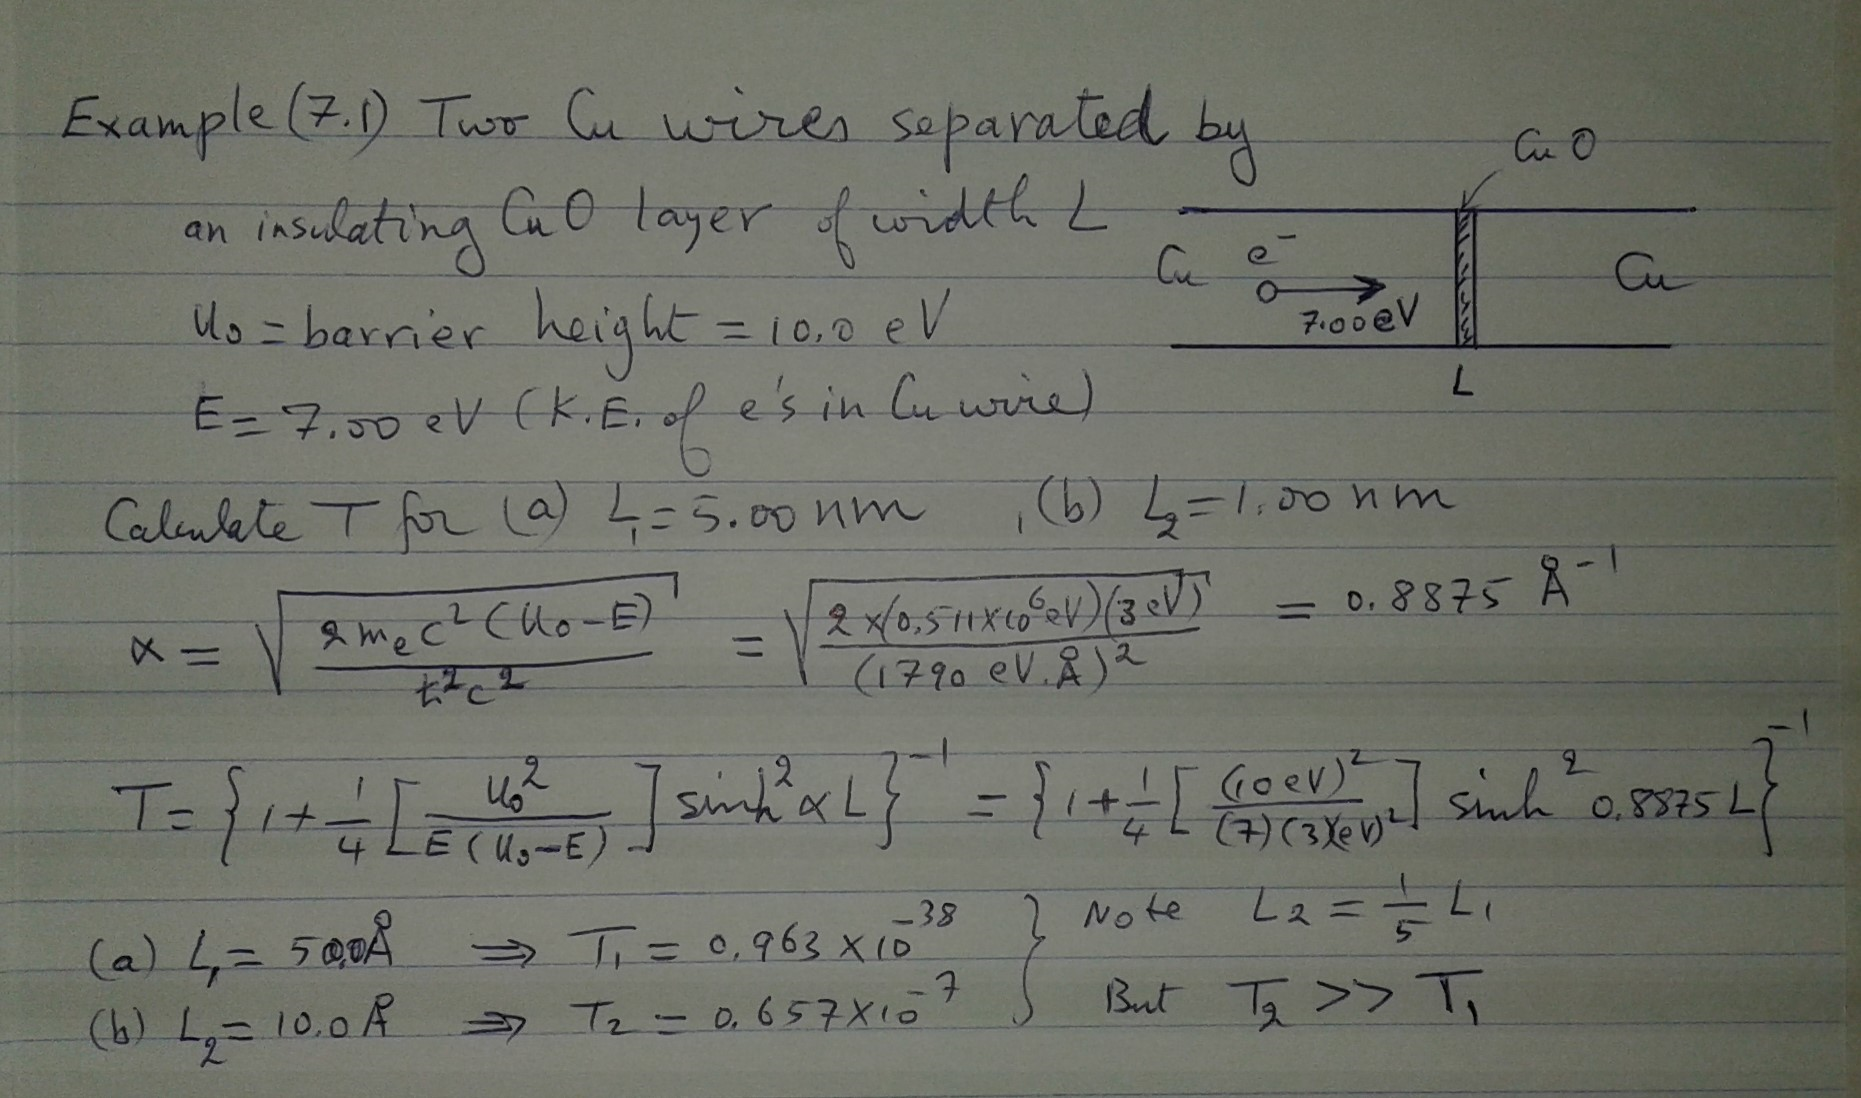 Example (7.1) Two Cu wires separated by
an insulating CuO layer of width L
U₀ = barrier height = 10.0 eV
E = 7.00 eV (K.E. of e's in Cu wire)
CuO
Cu e⁻ 7.00 eV Cu
L
Calculate T for (a) L₁ = 5.00 nm , (b) L₂ = 1.00 nm
α = √(2mₑc²(U₀-E) / ħ²c²) = √(2×(0.511×10⁶eV)(3eV) / (1790 eV.Å)²) = 0.8875 Å⁻¹
T = {1 + 1/4 [U₀² / E(U₀-E)] sinh² αL}⁻¹ = {1 + 1/4 [(10eV)² / (7)(3)(eV)²] sinh² 0.8875 L}⁻¹
(a) L₁ = 50.0Å ⇒ T₁ = 0.963 × 10⁻³⁸ } Note L₂ = 1/5 L₁
(b) L₂ = 10.0Å ⇒ T₂ = 0.657×10⁻⁷ } But T₂ >> T₁